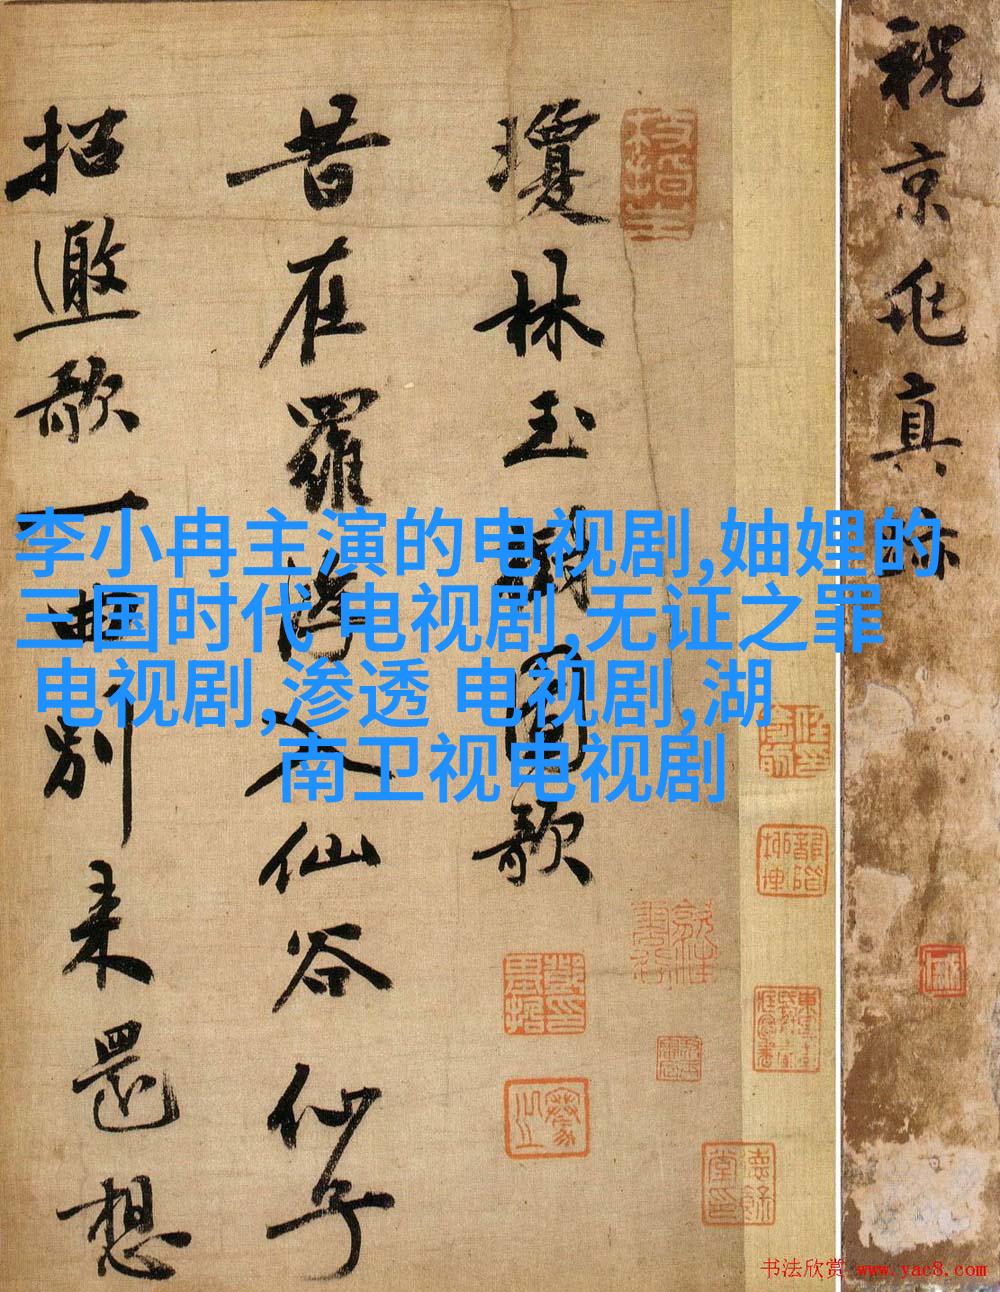 李小冉主演的电视剧,妯娌的
三国时代 电视剧,无证之罪
电视剧,渗透 电视剧,湖
南卫视电视剧
祝京兆真
瓊林玉圖歌
昔在羅浮入仙谷仙子
招邀歌一曲別来還想
书法欣赏 www.yac8.com